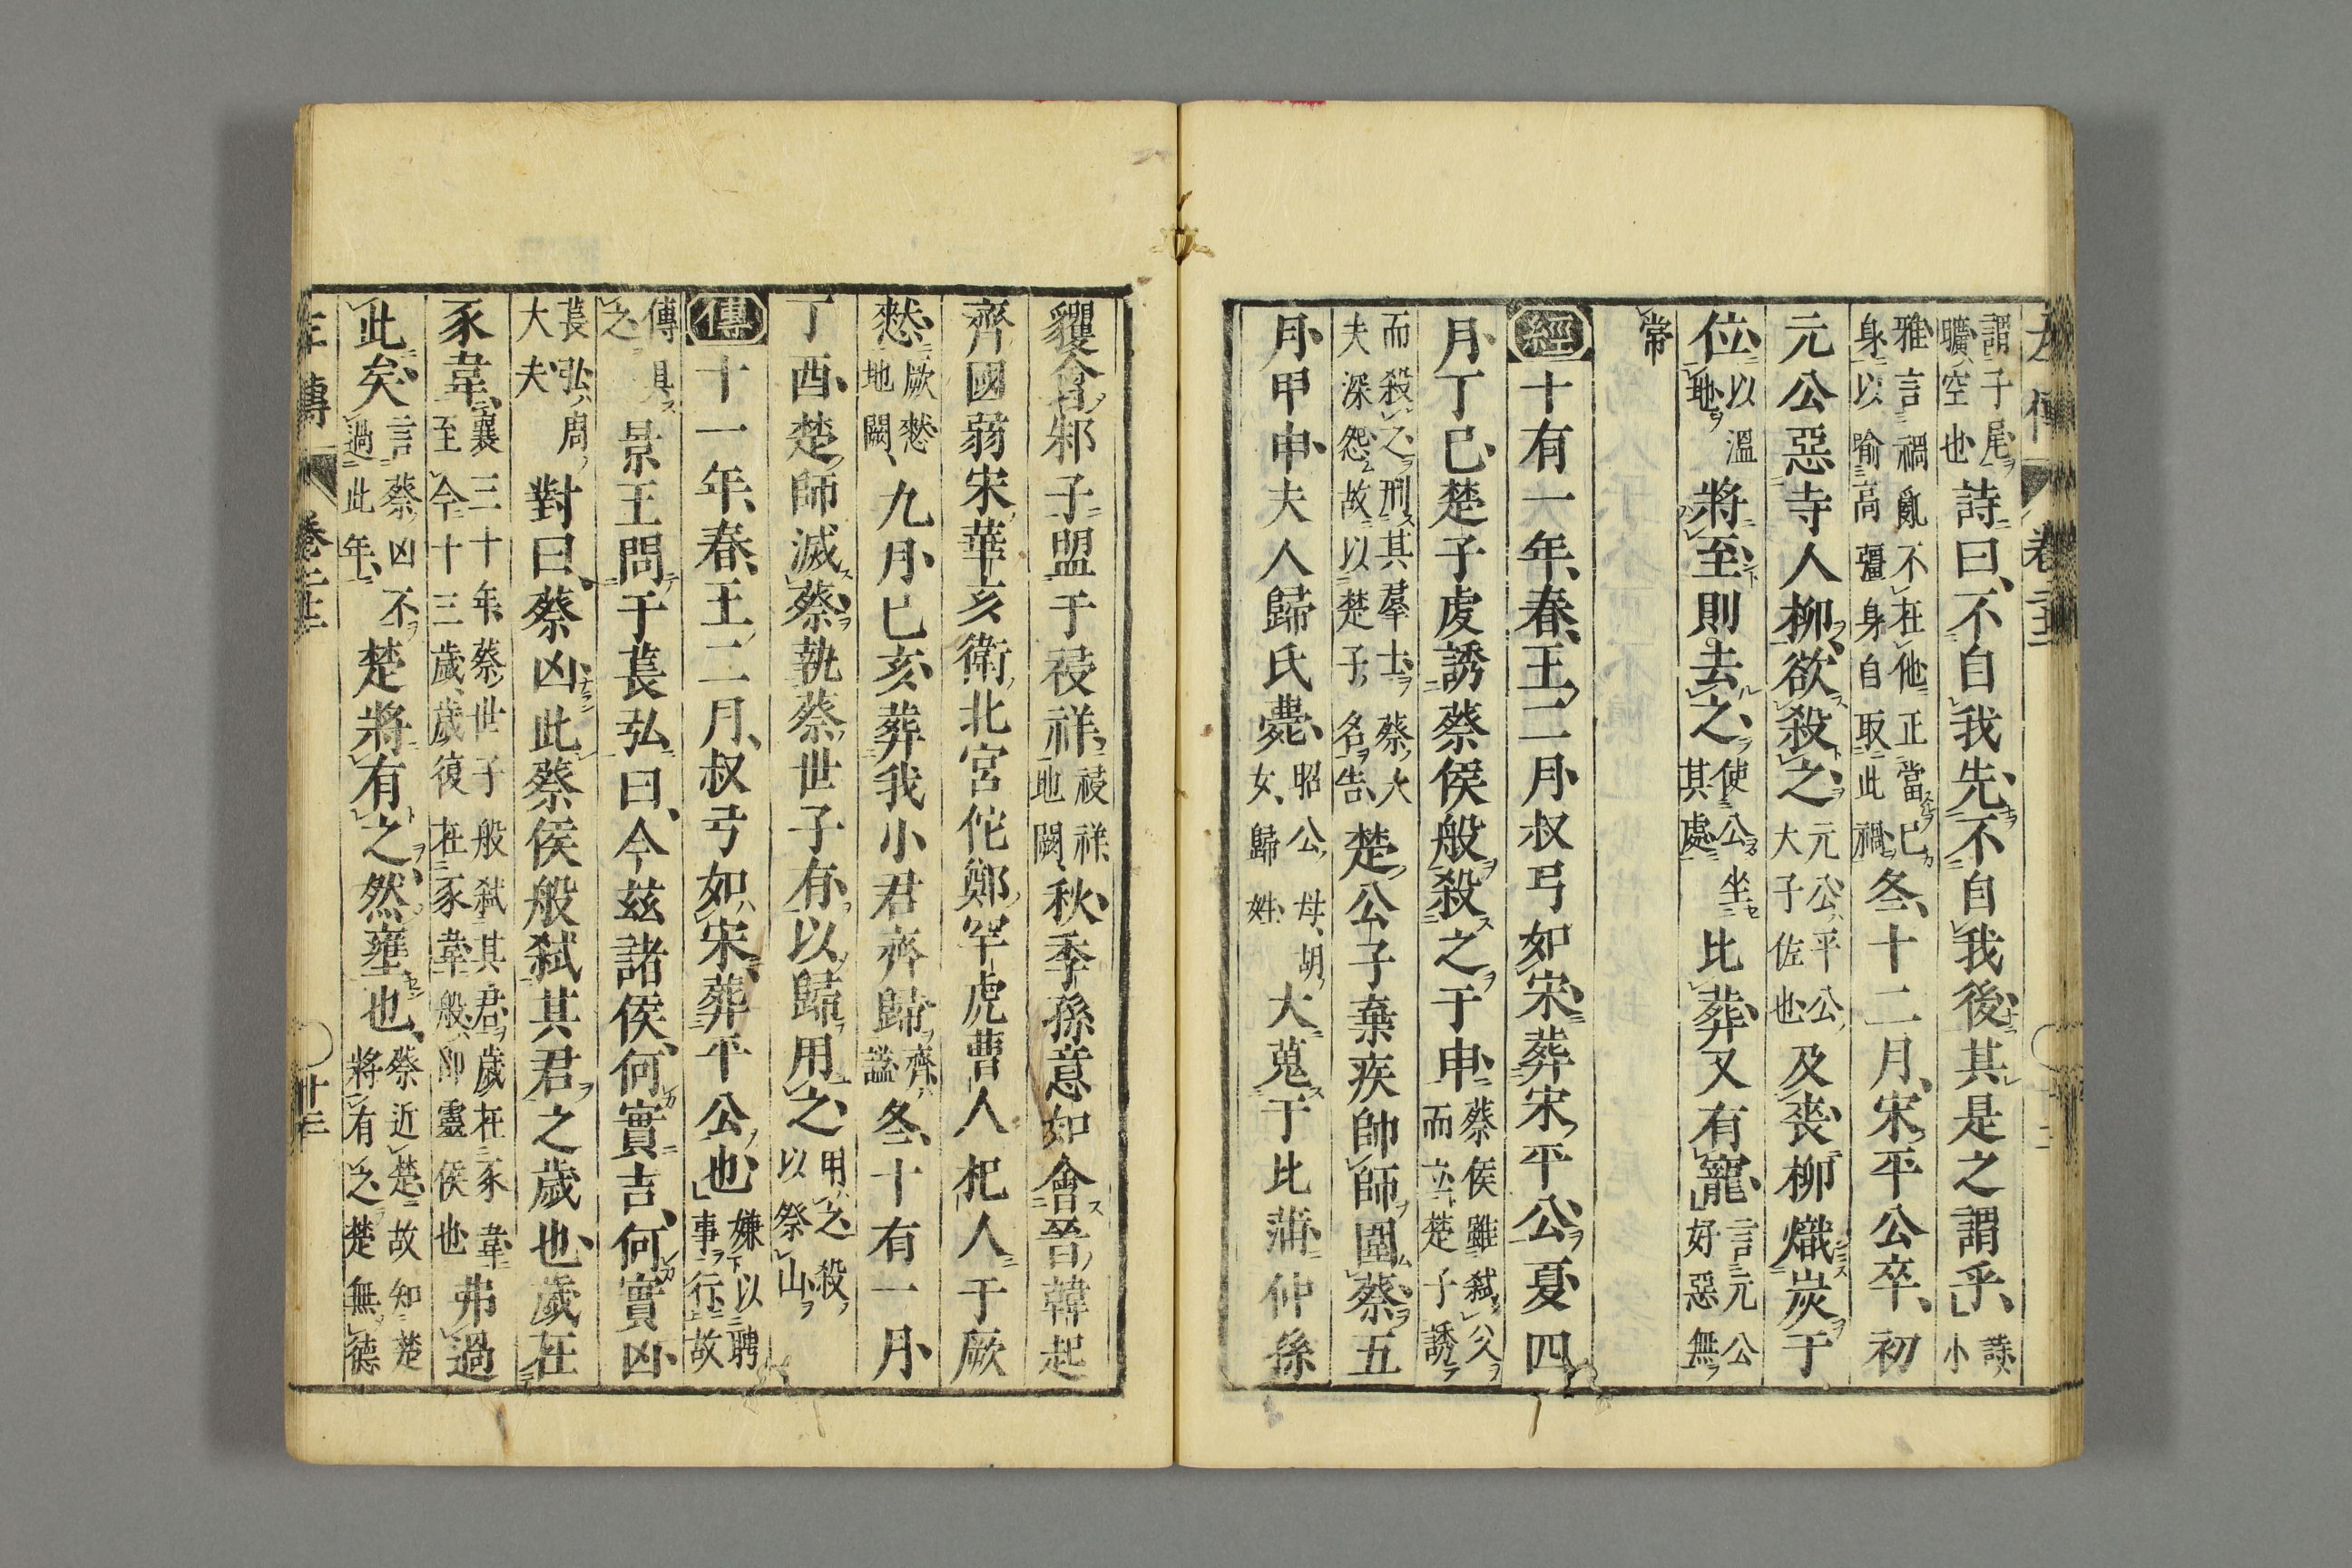 左傳 卷二十二
謂子尾曠空也詩曰、不自我先、不自我後、其是之謂乎、詩小
雅言禍亂不在他正當己身以喻高彊身自取此禍冬、十二月、宋平公卒、初
元公惡寺人柳、欲殺之、元公平公大子佐也及喪、柳熾炭于
位、以溫地將至則去之、使公坐其處比葬、又有寵、言元公好惡無
常
經十有一年、春、王二月、叔弓如宋、葬宋平公、夏四
月、丁巳、楚子虔誘蔡侯般、殺之于申、蔡侯雖弒父而立楚子誘
而殺之刑其羣士蔡大夫深怨故以楚子名告楚公子棄疾帥師圍蔡、五
月、甲申、夫人歸氏薨、昭公母、胡女、歸姓大蒐于比蒲、仲孫
貜會邾子盟于祲祥、祲祥地闕、秋、季孫意如會晉韓起
齊國弱宋華亥衛北宮佗鄭罕虎曹人杞人于厥
憖、厥憖地闕、九月、己亥、葬我小君齊歸、齊謚冬、十有一月、
丁酉、楚師滅蔡、執蔡世子有、以歸用之、用之殺以祭山
傳十一年、春、王二月、叔弓如宋、葬平公也、嫌以聘事行故
傳具之景王問于萇弘曰、今茲諸侯、何實吉、何實凶
萇弘周大夫對曰、蔡凶、此蔡侯般弒其君之歲也、歲在
豕韋、襄三十年蔡世子般弒其君歲在豕韋至今十三歲歲復在豕韋般即靈侯也弗過
此矣、言蔡凶不過此年、楚將有之、然壅也、蔡近楚故知楚將有之楚無德
左傳 卷二十二 十三